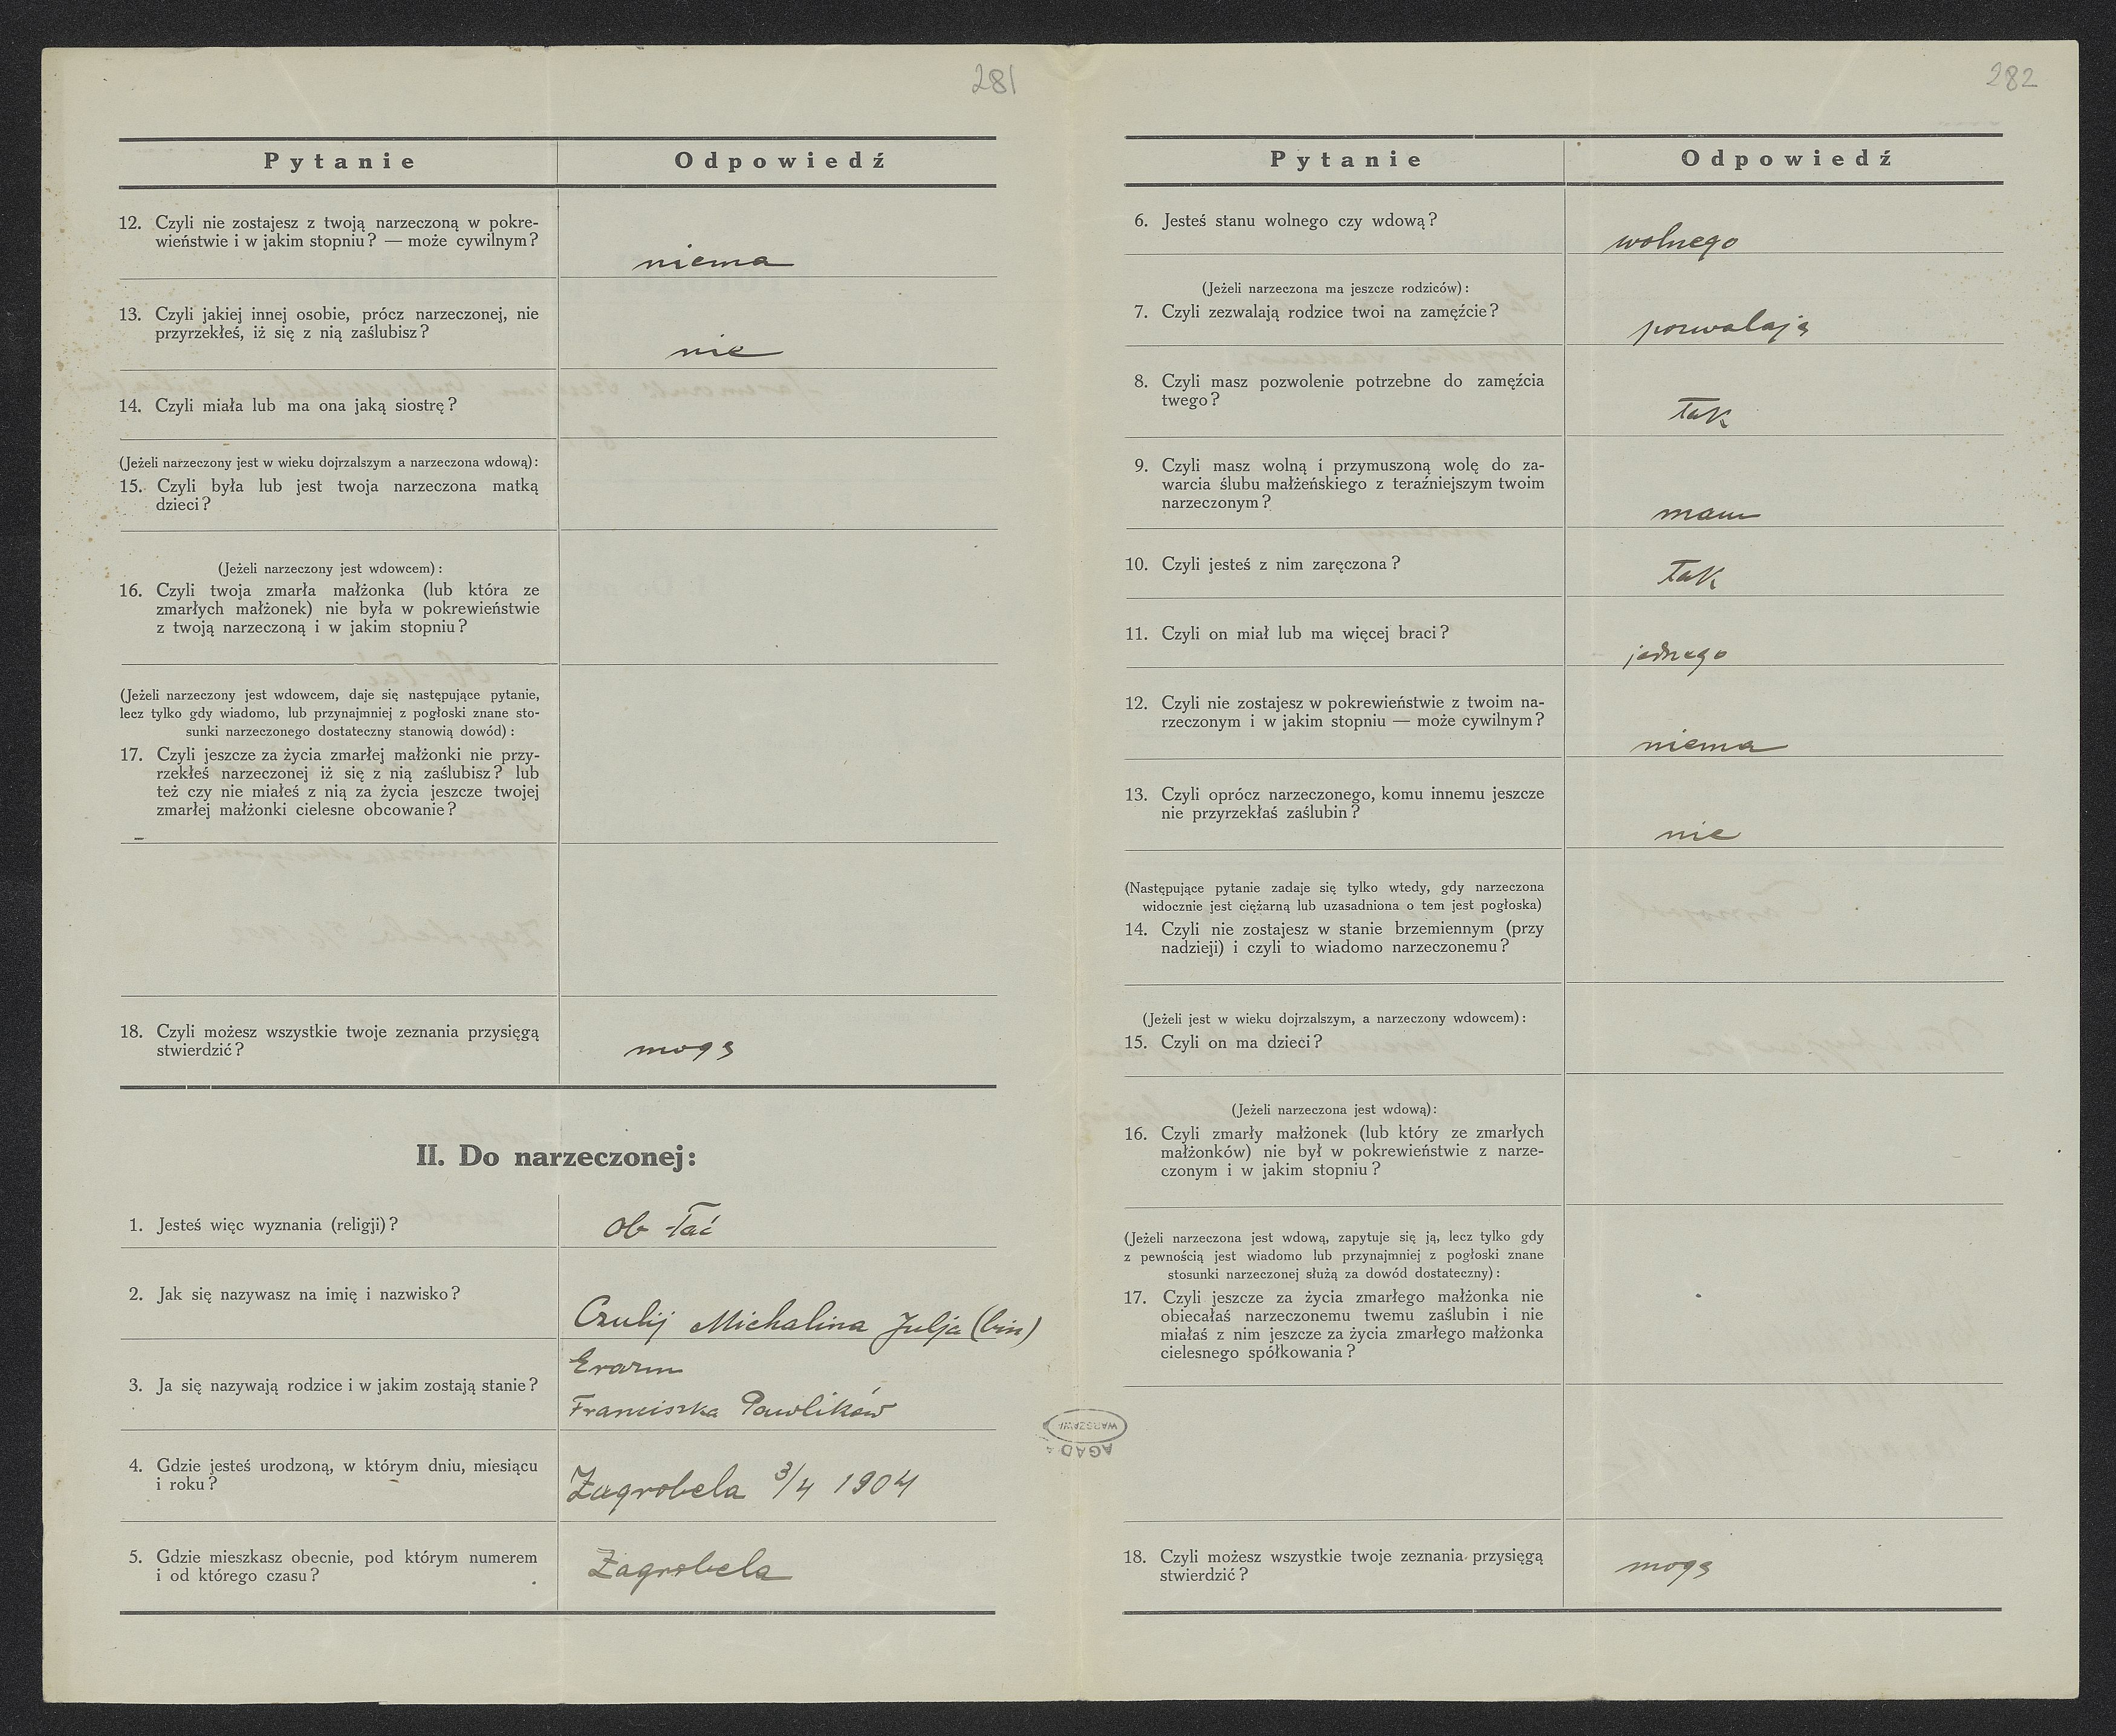 281
Pytanie Odpowiedź
12. Czyli nie zostajesz z twoją narzeczoną w pokre-
wieństwie i w jakim stopniu? — może cywilnym?
niema
13. Czyli jakiej innej osobie, prócz narzeczonej, nie
przyrzekłeś, iż się z nią zaślubisz?
nie
14. Czyli miała lub ma ona jaką siostrę?
(Jeżeli narzeczony jest w wieku dojrzalszym a narzeczona wdową):
15. Czyli była lub jest twoja narzeczona matką
dzieci?
(Jeżeli narzeczony jest wdowcem):
16. Czyli twoja zmarła małżonka (lub która ze
zmarłych małżonek) nie była w pokrewieństwie
z twoją narzeczoną i w jakim stopniu?
(Jeżeli narzeczony jest wdowcem, daje się następujące pytanie,
lecz tylko gdy wiadomo, lub przynajmniej z pogłoski znane sto-
sunki narzeczonego dostateczny stanowią dowód):
17. Czyli jeszcze za życia zmarłej małżonki nie przy-
rzekłeś narzeczonej iż się z nią zaślubisz? lub
też czy nie miałeś z nią za życia jeszcze twojej
zmarłej małżonki cielesne obcowanie?
18. Czyli możesz wszystkie twoje zeznania przysięgą
stwierdzić?
mogę
II. Do narzeczonej:
1. Jesteś więc wyznania (religji)?
ob łać
2. Jak się nazywasz na imię i nazwisko?
Czulij Michalina Julja (bin)
3. Ja się nazywają rodzice i w jakim zostają stanie?
Erazm
Franciszka Pawlików
4. Gdzie jesteś urodzoną, w którym dniu, miesiącu
i roku?
Zagrobela 3/4 1904
5. Gdzie mieszkasz obecnie, pod którym numerem
i od którego czasu?
Zagrobela
AGAD
WARSZAWA
282
Pytanie Odpowiedź
6. Jesteś stanu wolnego czy wdową?
wolnego
(Jeżeli narzeczona ma jeszcze rodziców):
7. Czyli zezwalają rodzice twoi na zamęźcie?
pozwalają
8. Czyli masz pozwolenie potrzebne do zamęźcia
twego?
tak
9. Czyli masz wolną i przymuszoną wolę do za-
warcia ślubu małżeńskiego z teraźniejszym twoim
narzeczonym?
mam
10. Czyli jesteś z nim zaręczona?
tak
11. Czyli on miał lub ma więcej braci?
jednego
12. Czyli nie zostajesz w pokrewieństwie z twoim na-
rzeczonym i w jakim stopniu — może cywilnym?
niema
13. Czyli oprócz narzeczonego, komu innemu jeszcze
nie przyrzekłaś zaślubin?
nie
(Następujące pytanie zadaje się tylko wtedy, gdy narzeczona
widocznie jest ciężarną lub uzasadniona o tem jest pogłoska)
14. Czyli nie zostajesz w stanie brzemiennym (przy
nadzieji) i czyli to wiadomo narzeczonemu?
(Jeżeli jest w wieku dojrzalszym, a narzeczony wdowcem):
15. Czyli on ma dzieci?
(Jeżeli narzeczona jest wdową):
16. Czyli zmarły małżonek (lub który ze zmarłych
małżonków) nie był w pokrewieństwie z narze-
czonym i w jakim stopniu?
(Jeżeli narzeczona jest wdową, zapytuje się ją, lecz tylko gdy
z pewnością jest wiadomo lub przynajmniej z pogłoski znane
stosunki narzeczonej służą za dowód dostateczny):
17. Czyli jeszcze za życia zmarłego małżonka nie
obiecałaś narzeczonemu twemu zaślubin i nie
miałaś z nim jeszcze za życia zmarłego małżonka
cielesnego spółkowania?
18. Czyli możesz wszystkie twoje zeznania przysięgą
stwierdzić?
mogę